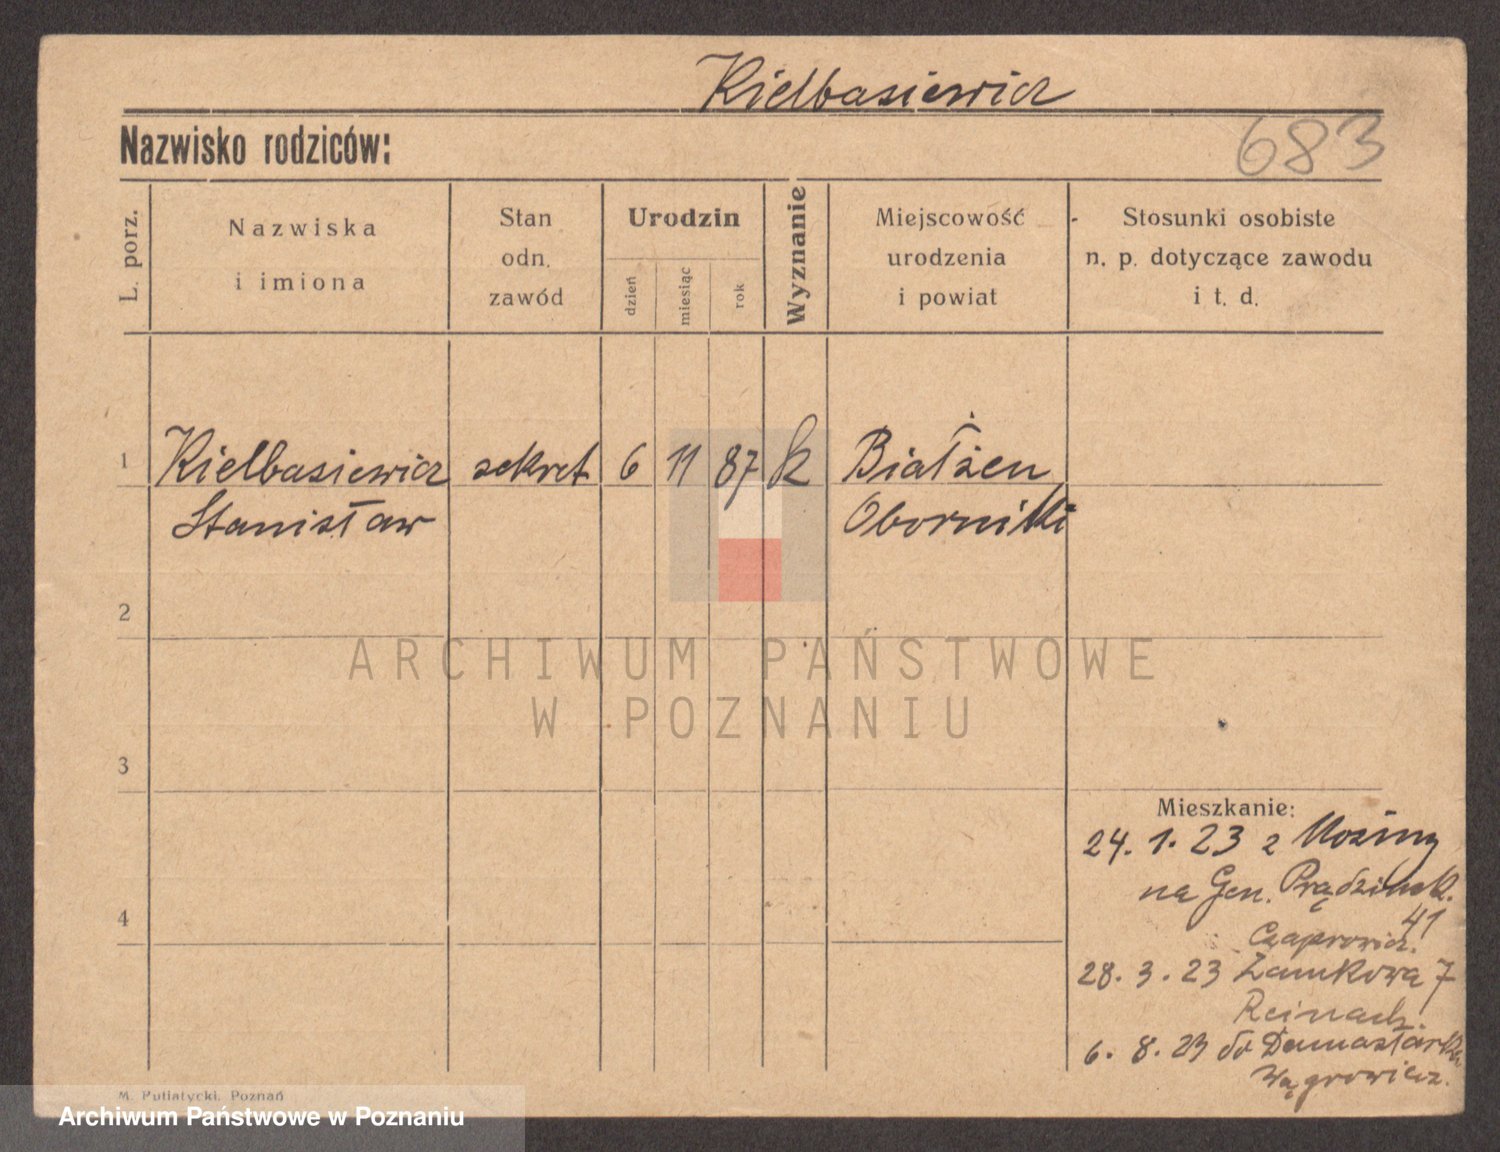 Kielbasiewicz
Nazwisko rodziców:
683
L. porz.
Nazwiska
i imiona
Stan
odn.
zawód
Urodzin
dzień
miesiąc
rok
Wyznanie
Miejscowość
urodzenia
i powiat
Stosunki osobiste
n. p. dotyczące zawodu
i t. d.
1
Kielbasiewicz sekret. 6 11 87 k Białżen
Stanisław Oborniki
2
ARCHIWUM PAŃSTWOWE
W POZNANIU
3
Mieszkanie:
24. 1. 23 z
na Gen. Prądzińsk.
41
4
28. 3. 23 Zamkowa 7
Reinach.
6. 8. 23 do
Wągrowiec.
M. Putiatycki, Poznań
Archiwum Państwowe w Poznaniu